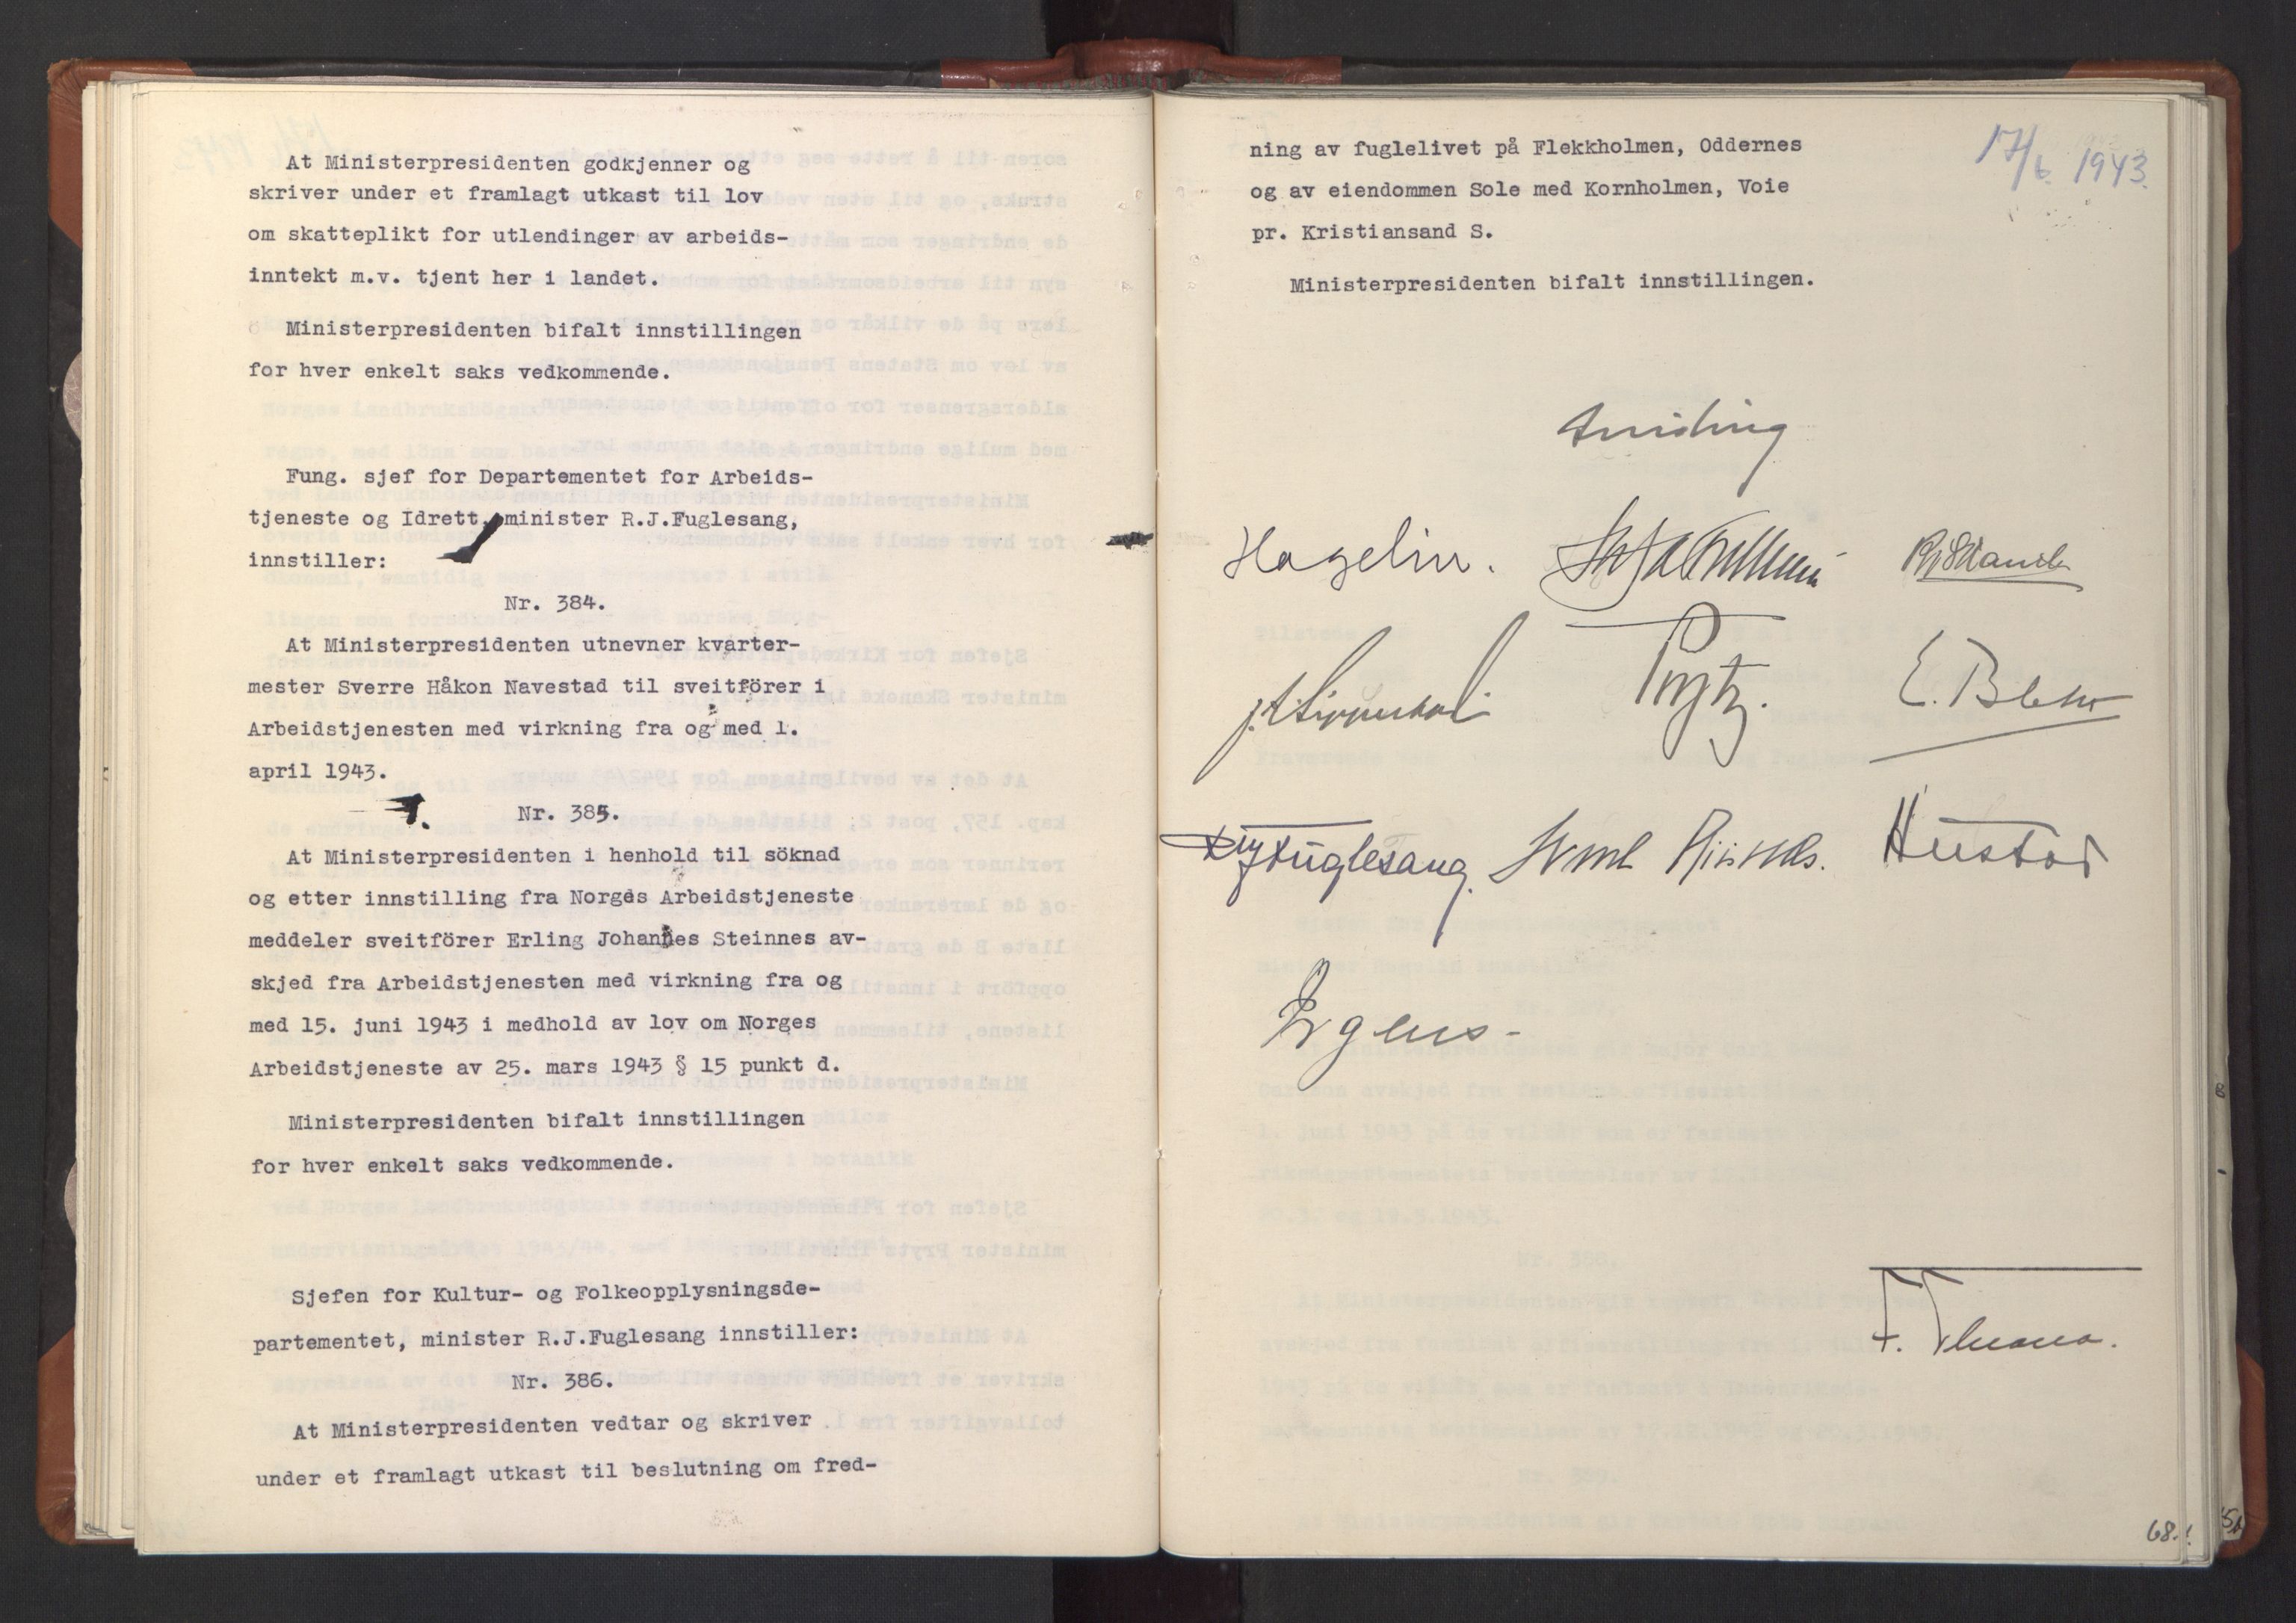 At Ministerpresidenten godkjenner og
skriver under et framlagt utkast til lov
om skatteplikt for utlendinger av arbeids-
inntekt m.v. tjent her i landet.
Ministerpresidenten bifalt innstillingen
for hver enkelt saks vedkommende.
Fung. sjef for Departementet for Arbeids-
tjeneste og Idrett, minister R.J.Fuglesang,
innstiller:
Nr. 384.
At Ministerpresidenten utnevner kvarter-
mester Sverre Håkon Navestad til sveitförer i
Arbeidstjenesten med virkning fra og med 1.
april 1943.
Nr. 385.
At Ministerpresidenten i henhold til söknad
og etter innstilling fra Norges Arbeidstjeneste
meddeler sveitförer Erling Johannes Steinnes av-
skjed fra Arbeidstjenesten med virkning fra og
med 15. juni 1943 i medhold av lov om Norges
Arbeidstjeneste av 25. mars 1943 § 15 punkt d.
Ministerpresidenten bifalt innstillingen
for hver enkelt saks vedkommende.
Sjefen for Kultur- og Folkeopplysningsde-
partementet, minister R.J.Fuglesang innstiller:
Nr. 386.
At Ministerpresidenten vedtar og skriver
under et framlagt utkast til beslutning om fred-
17/6 1943.
ning av fuglelivet på Flekkholmen, Oddernes
og av eiendommen Sole med Kornholmen, Voie
pr. Kristiansand S.
Ministerpresidenten bifalt innstillingen.
Quisling
Hagelin.
Prytz.
Fuglesang. Hustad
Irgens
68.